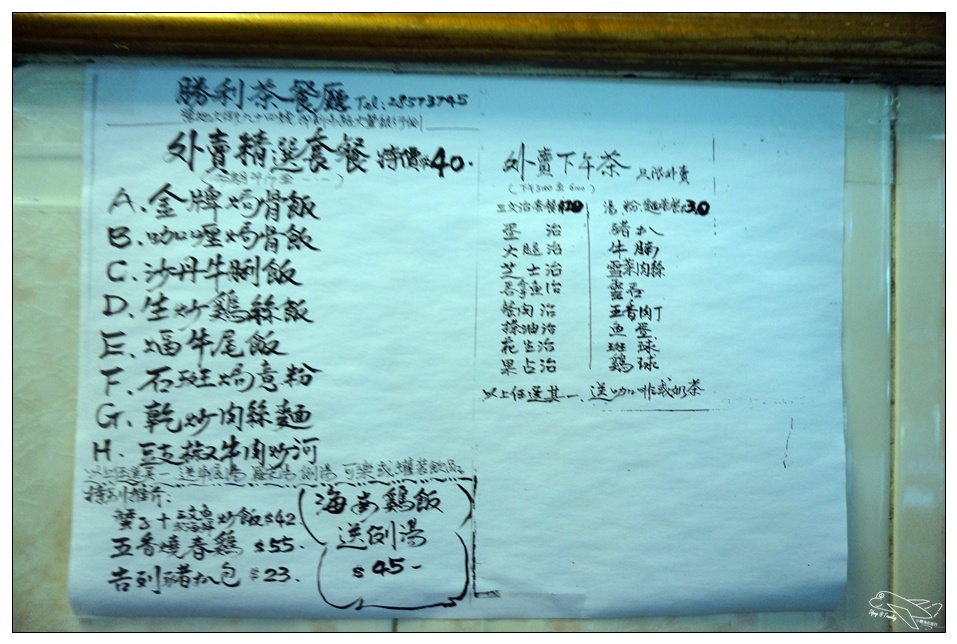 勝利茶餐廳 Tel: 28573745
外賣精選套餐 特價$40.
A. 金牌焗骨飯
B. 咖喱焗骨飯
C. 沙丹牛脷飯
D. 生炒鷄絲飯
E. 煏牛尾飯
F. 石斑焗意粉
G. 乾炒肉絲麵
H. 豉椒牛肉炒河
以上任選其一 送 例湯 可樂或罐裝飲品
特別推介:
蟹子十三文魚炒飯$42
五香燒春鷄 $55.
吉列豬扒包 $23.
海南鷄飯
送例湯
$45-
外賣下午茶 只限外賣
三文治套餐$20
蛋 治
大腿治
芝士治
吞拿魚治
餐肉治
搽油治
花生治
果占治
湯.粉.麵套餐$30
豬扒
牛腩
雪菜肉絲
五香肉丁
魚蛋
斑球
鷄球
以上任選其一、送咖啡或奶茶